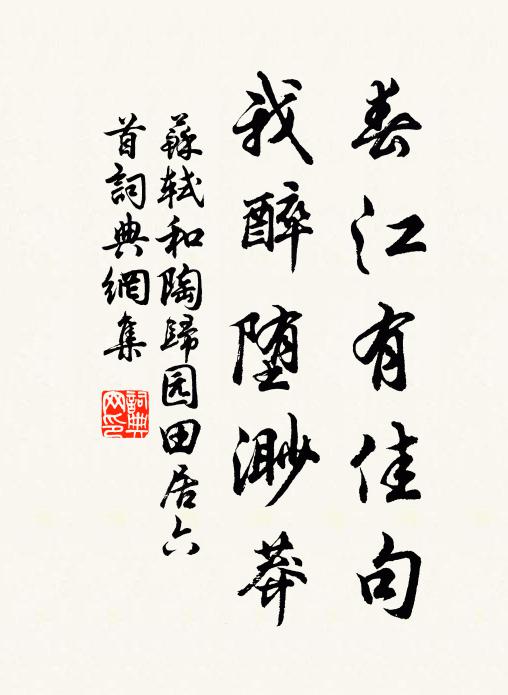 春江有佳句
我醉堕渺莽
蘇軾和陶歸园田居六
首詞典網集
詞典
网印